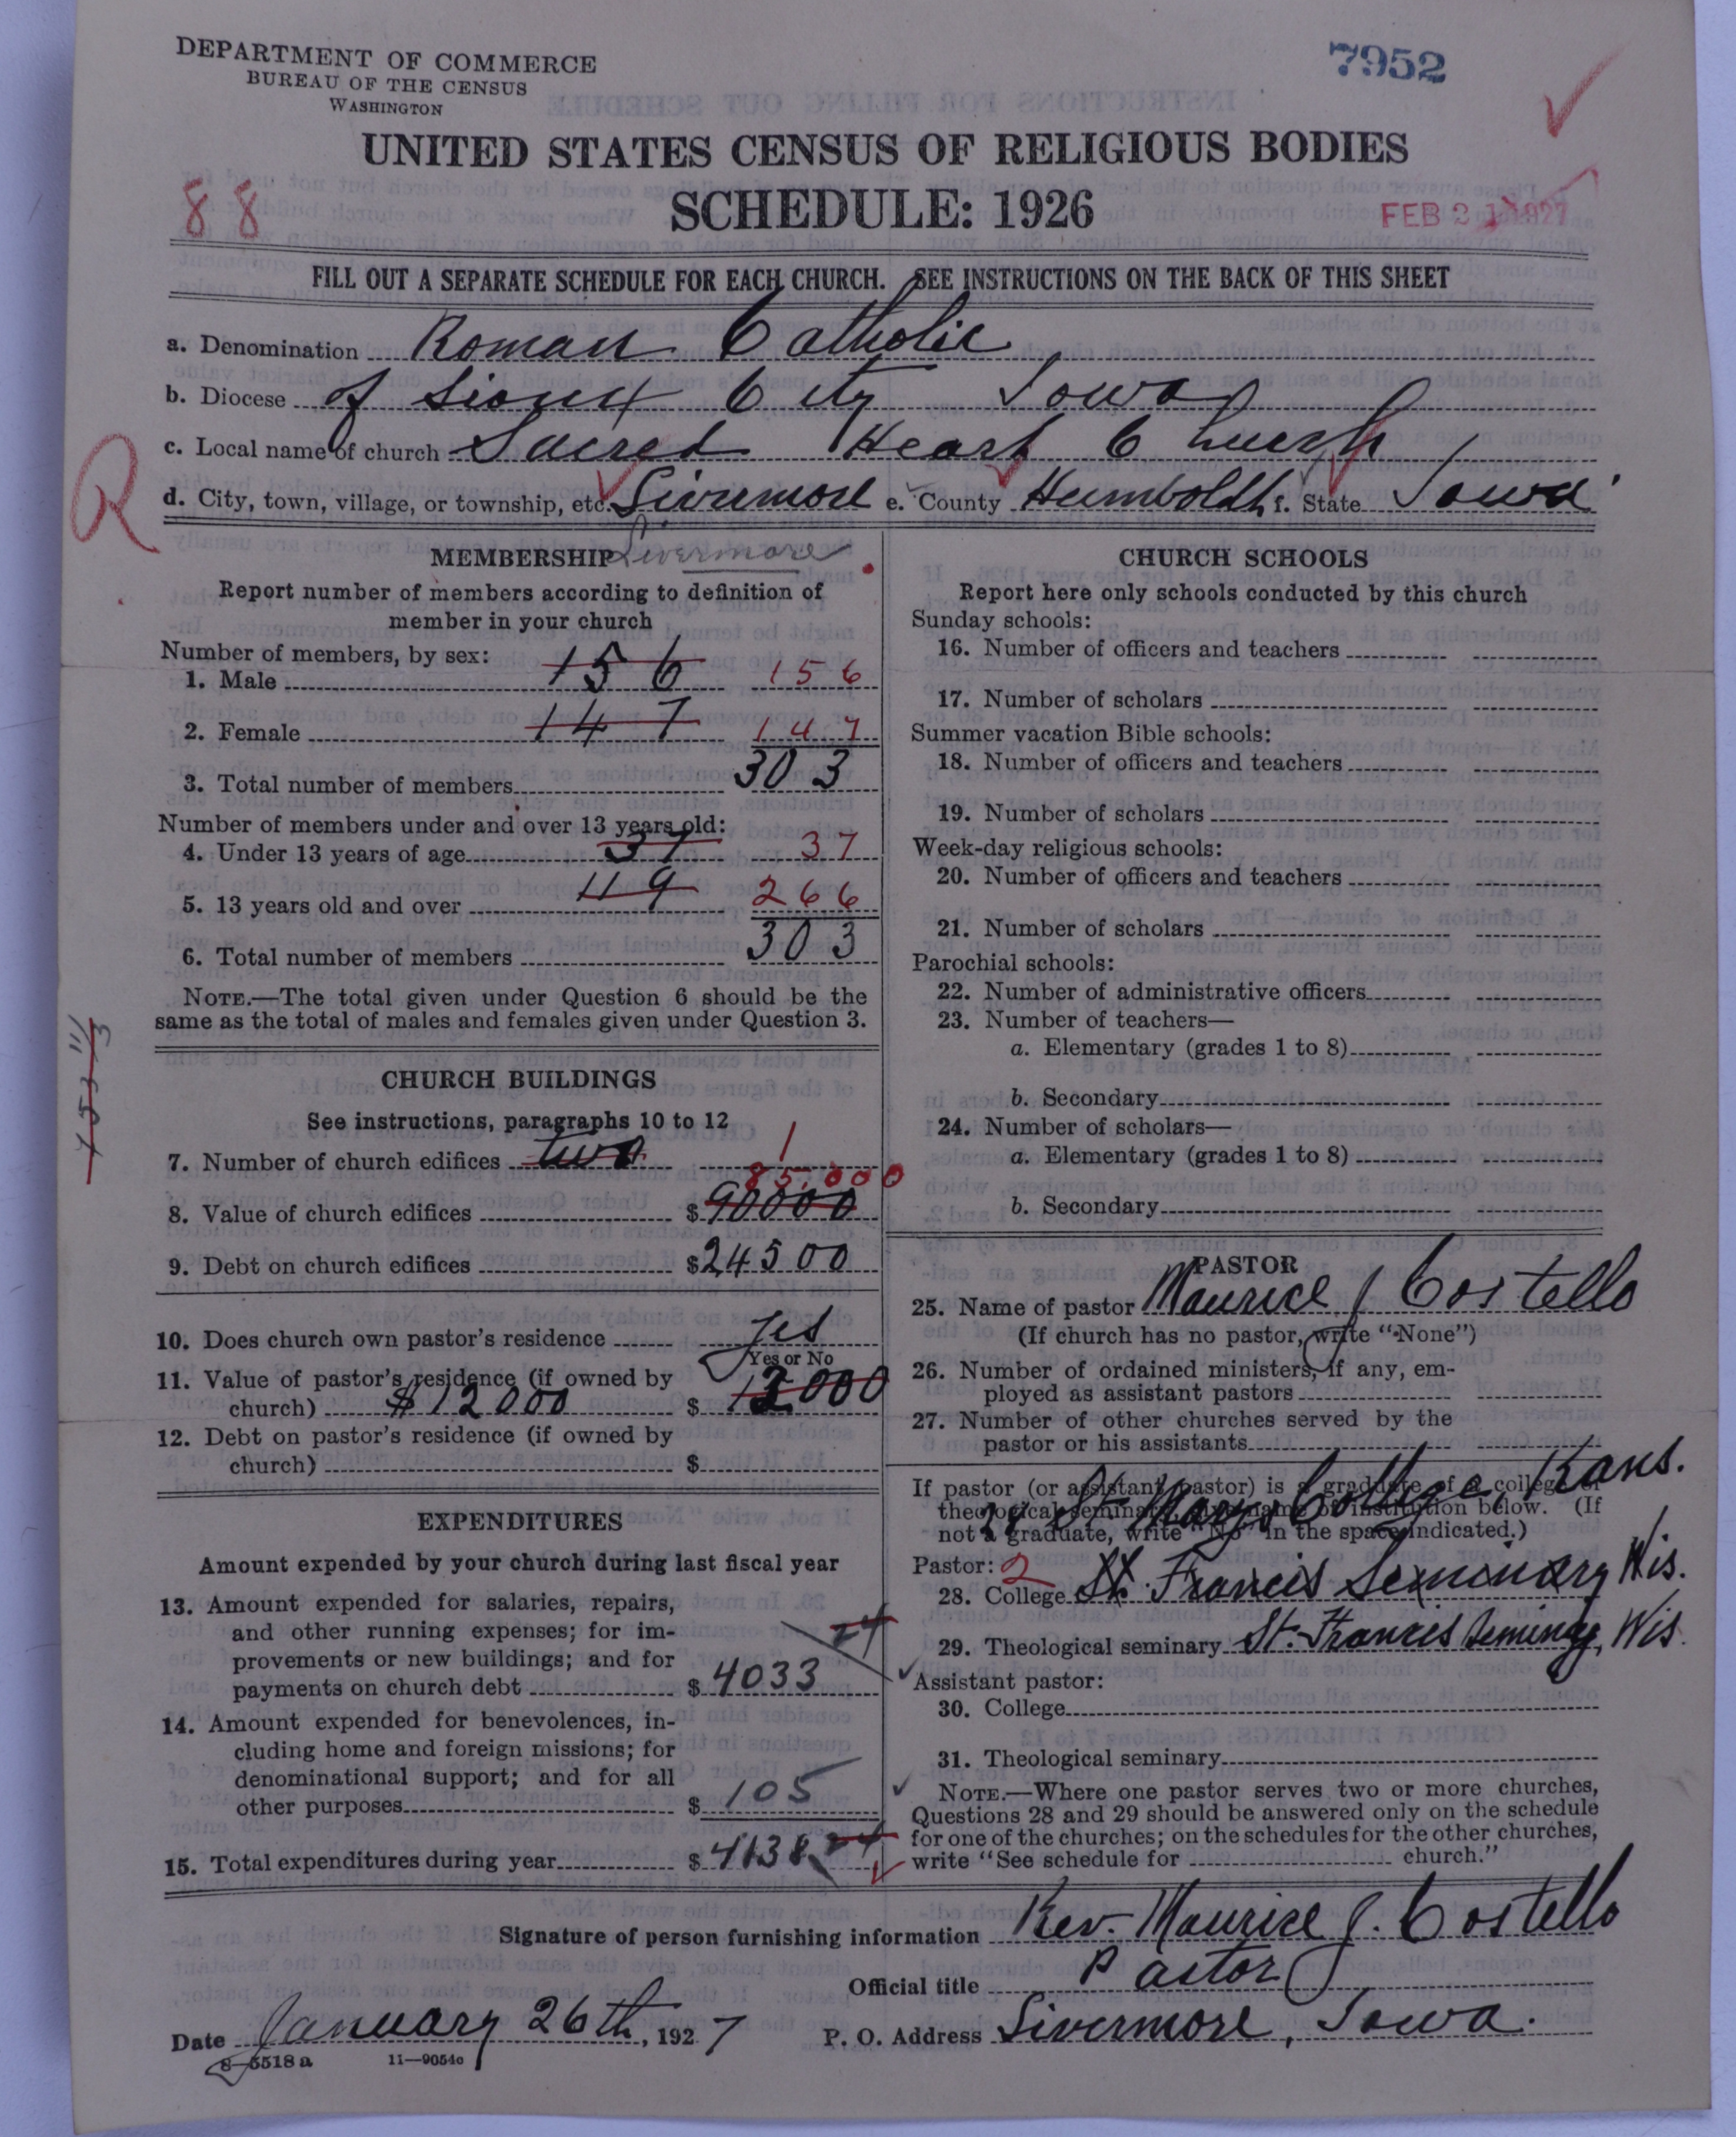 DEPARTMENT OF COMMERCE
BUREAU OF THE CENSUS
WASHINGTON
7952
UNITED STATES CENSUS OF RELIGIOUS BODIES
88
SCHEDULE: 1926
FEB 21 1927
FILL OUT A SEPARATE SCHEDULE FOR EACH CHURCH. SEE INSTRUCTIONS ON THE BACK OF THIS SHEET
a. Denomination Roman Catholic
b. Diocese of Sioux City Iowa
c. Local name of church Sacred Heart Church
R
d. City, town, village, or township, etc. Livermore e. County Humboldt f. State Iowa
MEMBERSHIP Livermore
Report number of members according to definition of
member in your church
Number of members, by sex:
1. Male 156 156
2. Female 147 147
3. Total number of members 303
Number of members under and over 13 years old:
4. Under 13 years of age 37 37
5. 13 years old and over 119 266
6. Total number of members 303
NOTE.—The total given under Question 6 should be the
same as the total of males and females given under Question 3.
CHURCH BUILDINGS
See instructions, paragraphs 10 to 12
7. Number of church edifices two 1
85,000
8. Value of church edifices $ 90000
9. Debt on church edifices $ 24500
10. Does church own pastor's residence Yes
Yes or No
11. Value of pastor's residence (if owned by
church) $12000 $ 12000
12. Debt on pastor's residence (if owned by
church) $
EXPENDITURES
Amount expended by your church during last fiscal year
13. Amount expended for salaries, repairs,
and other running expenses; for im-
provements or new buildings; and for
payments on church debt $ 4033 24
14. Amount expended for benevolences, in-
cluding home and foreign missions; for
denominational support; and for all
other purposes $ 105
15. Total expenditures during year $ 4138 24
CHURCH SCHOOLS
Report here only schools conducted by this church
Sunday schools:
16. Number of officers and teachers
17. Number of scholars
Summer vacation Bible schools:
18. Number of officers and teachers
19. Number of scholars
Week-day religious schools:
20. Number of officers and teachers
21. Number of scholars
Parochial schools:
22. Number of administrative officers
23. Number of teachers—
a. Elementary (grades 1 to 8)
b. Secondary
24. Number of scholars—
a. Elementary (grades 1 to 8)
b. Secondary
PASTOR
25. Name of pastor Maurice J Costello
(If church has no pastor, write "None")
26. Number of ordained ministers, if any, em-
ployed as assistant pastors
27. Number of other churches served by the
pastor or his assistants
If pastor (or assistant pastor) is a graduate of a college or
theological seminary, give name of institution below. (If
not a graduate, write "No" in the space indicated.)
28 St Marys College, Kans.
Pastor: 2
28. College St. Francis Seminary Wis.
29. Theological seminary St. Francis Seminary, Wis.
Assistant pastor:
30. College
31. Theological seminary
NOTE.—Where one pastor serves two or more churches,
Questions 28 and 29 should be answered only on the schedule
for one of the churches; on the schedules for the other churches,
write "See schedule for church."
Signature of person furnishing information Rev. Maurice J. Costello
Official title Pastor
Date January 26th, 1927 P. O. Address Livermore, Iowa.
8—5518 a 11—9054c